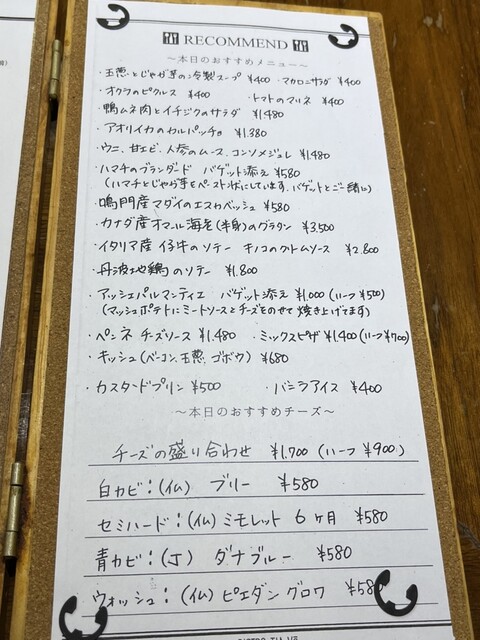 RECOMMEND
～本日のおすすめメニュー～
・玉葱とじゃが芋の冷製スープ ¥400 ・マカロニサラダ ¥400
・オクラのピクルス ¥400 ・トマトのマリネ ¥400
・鴨ムネ肉とイチジクのサラダ ¥1,480
・アオリイカのカルパッチョ ¥1,380
・ウニ、甘エビ、人参のムース、コンソメジュレ ¥1,480
・ハマチのブランダード バゲット添え ¥580
(ハマチとじゃが芋をペースト状にしています。バゲットとご一緒に)
・鳴門産マダイのエスカベッシュ ¥580
・カナダ産オマール海老(半身)のグラタン ¥3,500
・イタリア産 仔牛のソテー キノコのクリームソース ¥2,800
・丹波地鶏のソテー ¥1,800
・アッシェパルマンティエ バゲット添え ¥1,000 (ハーフ ¥500)
(マッシュポテトにミートソースとチーズをのせて焼き上げてます)
・ペンネ チーズソース ¥1,480 ・ミックスピザ ¥1,400 (ハーフ ¥700)
・キッシュ (ベーコン、玉葱、ゴボウ) ¥680
・カスタードプリン ¥500 ・バニラアイス ¥400
～本日のおすすめチーズ～
チーズの盛り合わせ ¥1,700 (ハーフ ¥900)
白カビ：(仏) ブリー ¥580
セミハード：(仏) ミモレット 6ヶ月 ¥580
青カビ：(J) ダナブルー ¥580
ウォッシュ：(仏) ピエダングロワ ¥580